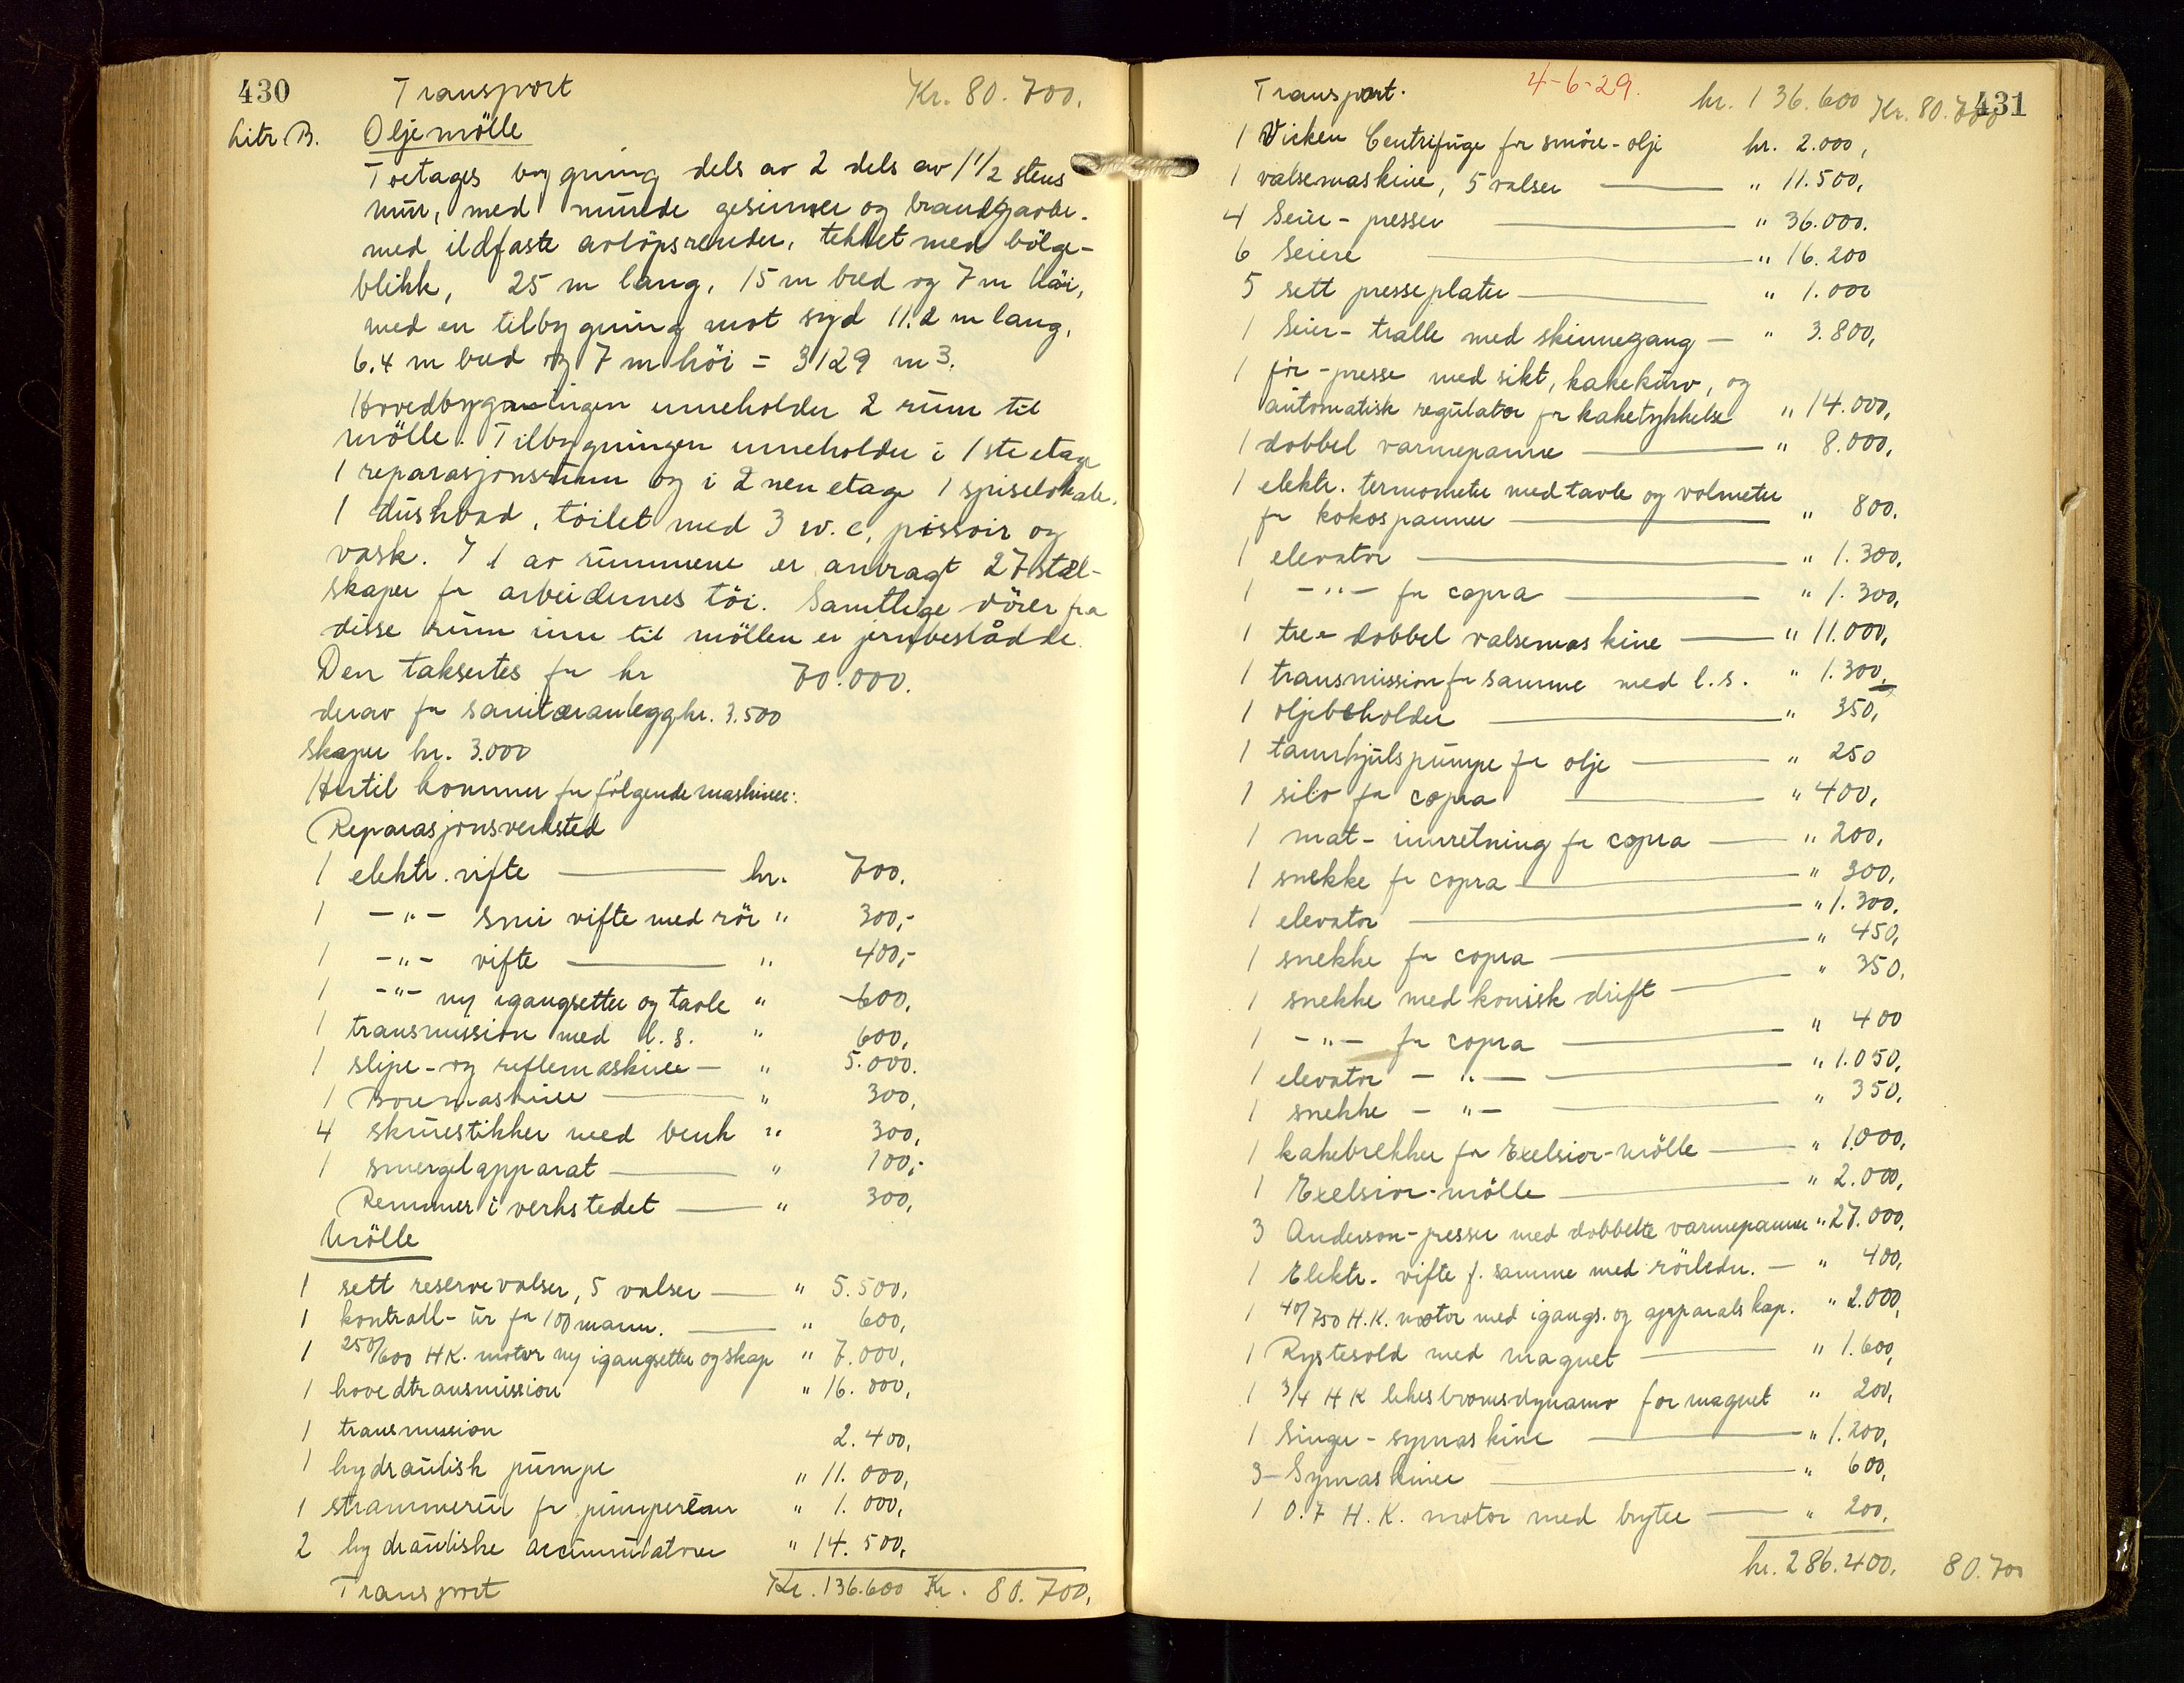 430 Transport Kr. 80.700.
Litr B. Oljemölle
Toetages bygning dels av 2 dels av 1 1/2 stens
mur, med murede gesimser og brandgavle.
med ildfaste avlöpsrender, tekket med bölge-
blikk, 25 m lang, 15 m bred og 7 m höi,
med en tilbygning mot syd 11.2 m lang,
6.4 m bred og 7 m höi = 3129 m3.
Hovedbygningen inneholder 2 rum til
mölle. Tilbygningen inneholder i 1ste etage
1 reparasjonsrum og i 2nen etage 1 spiselokale,
1 dushbad, toilet med 3 w.c, pissoir og
vask. I 1 av rummene er anbragt 27 stål-
skaper for arbeidernes töi. Samtlige dörer fra
disse rum inn til möllen er jernbeslådde.
Den taksertes for kr 70.000.
derav for sanitæranlegg kr. 3.500
skaper kr. 3.000
Hertil kommer for fölgende maskiner:
Reparasjonsverksted
1 elektr. vifte kr. 700.
1 -"- smi vifte med rör " 300,-
1 -"- vifte " 400,-
1 -"- ny igangsetter og tavle " 600,
1 transmission med l.s. " 600,
1 slipe- og reflemaskine - " 5.000.
1 Boremaskine " 300,
4 skruestikker med benk " 300,
1 smergelapparat " 100,-
Remmer i verkstedet " 300,
Mölle
1 sett reservevalser, 5 valser " 5.500,
1 kontroll-ur for 100 mann. " 600,
1 250/600 HK. motor ny igangsetter og skap " 7.000,
1 hovedtransmission " 16.000,
1 transmission 2.400,
1 hydraulisk pumpe " 11.000,
1 strammerul for pumperem " 1.000,
2 hydrauliske accumulatorer " 14.500,
Transport Kr. 136.600 Kr. 80.700,
Transport. 4-6-29. kr. 136.600 Kr. 80.700 431
1 Viken Centrifuge for smöre-olje kr. 2.000,
1 valsemaskine, 5 valser " 11.500,
4 Seier-presser " 36.000.
6 Seiere " 16.200
5 sett presseplater " 1.000
1 Seier-tralle med skinnegang " 3.800,
1 för-presse med sikt, kakekurv, og
automatisk regulator for kaketykkelse " 14.000,
1 dobbel varmepanne " 8.000,
1 elektr. termometer med tavle og volmeter
for kokospanner " 800.
1 elevator " 1.300,
1 -"- for copra " 1.300,
1 tre-dobbel valsemaskine " 11.000,
1 transmission for samme med l.s. " 1.300,
1 oljebeholder " 350,
1 tannhjulspumpe for olje " 250
1 silo for copra " 400,
1 mat-innretning for copra " 200,
1 snekke for copra " 300,
1 elevator " 1.300,
1 snekke for copra " 450,
1 snekke med konisk drift " 350,
1 -"- for copra " 400
1 elevator -"- " 1.050,
1 snekke -"- " 350,
1 kakebrekker for Exelsior-mölle " 1.000,
1 Exelsior-mölle " 2.000,
3 Anderson-presser med dobbelte varmepanner " 27.000,
1 Elektr. vifte f. samme med rörledn. - " 400,
1 40/750 H.K. motor med igangs. og apparatskap. " 2.000,
1 Rystesold med magnet " 1.600,
1 3/4 HK likestromsdynamo for magnet " 200,
1 Singer-symaskine " 1.200,
3 Symaskiner " 600,
1 0.7 H.K. motor med bryter " 200,
kr. 286.400. 80.700